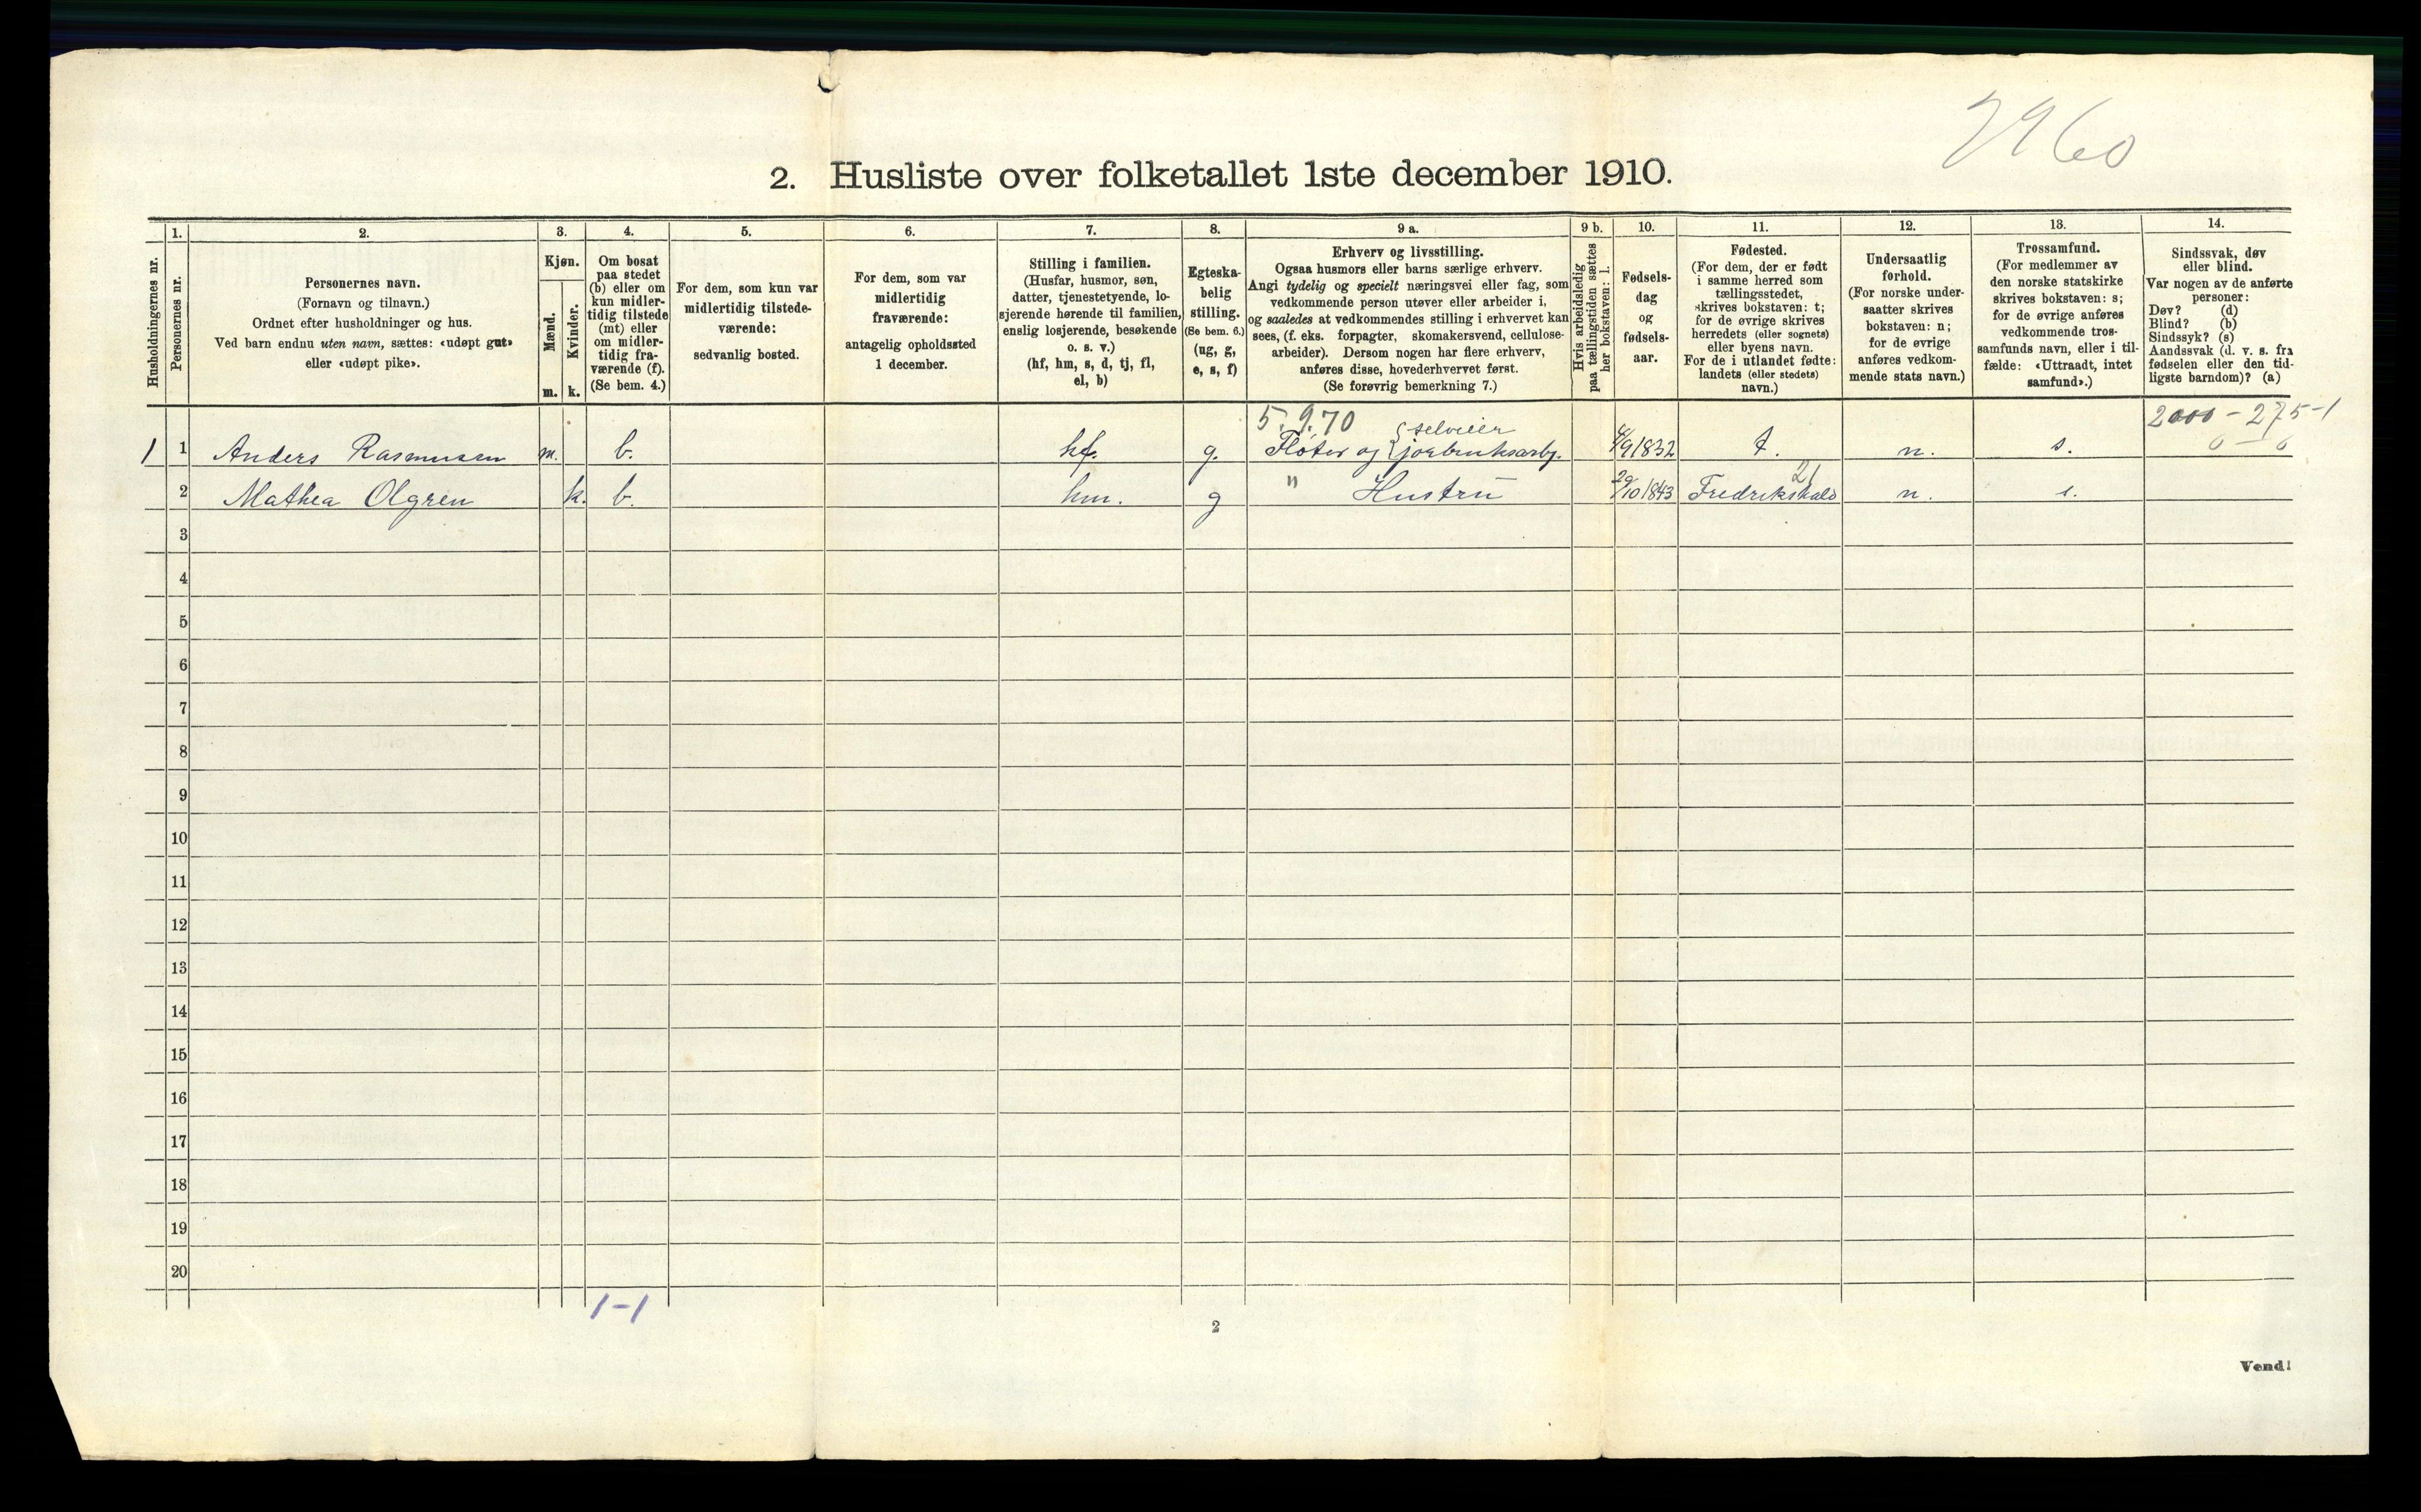 2960
2. Husliste over folketallet 1ste december 1910.
Husholdningernes nr.
1.
Personernes nr.
2.
Personernes navn.
(Fornavn og tilnavn.)
Ordnet efter husholdninger og hus.
Ved barn endnu uten navn, sættes: «udøpt gut»
eller «udøpt pike».
3.
Kjøn.
Mænd.
Kvinder.
m. k.
4.
Om bosat
paa stedet
(b) eller om
kun midler-
tidig tilstede
(mt) eller
om midler-
tidig fra-
værende (f).
(Se bem. 4.)
5.
For dem, som kun var
midlertidig tilstede-
værende:
sedvanlig bosted.
6.
For dem, som var
midlertidig
fraværende:
antagelig opholdssted
1 december.
7.
Stilling i familien.
(Husfar, husmor, søn,
datter, tjenestetyende, lo-
sjerende hørende til familien,
enslig losjerende, besøkende
o. s. v.)
(hf, hm, s, d, tj, fl,
el, b)
8.
Egteska-
belig
stilling.
(Se bem. 6.)
(ug, g,
e, s, f)
9 a.
Erhverv og livsstilling.
Ogsaa husmors eller barns særlige erhverv.
Angi tydelig og specielt næringsvei eller fag, som
vedkommende person utøver eller arbeider i,
og saaledes at vedkommendes stilling i erhvervet kan
sees, (f. eks. forpagter, skomakersvend, cellulose-
arbeider). Dersom nogen har flere erhverv,
anføres disse, hovederhvervet først.
(Se forøvrig bemerkning 7.)
9 b.
Hvis arbeidsledig
paa tællingstiden sættes
her bokstaven: l.
10.
Fødsels-
dag
og
fødsels-
aar.
11.
Fødested.
(For dem, der er født
i samme herred som
tællingsstedet,
skrives bokstaven: t;
for de øvrige skrives
herredets (eller sognets)
eller byens navn.
For de i utlandet fødte:
landets (eller stedets)
navn.)
12.
Undersaatlig
forhold.
(For norske under-
saatter skrives
bokstaven: n;
for de øvrige
anføres vedkom-
mende stats navn.)
13.
Trossamfund.
(For medlemmer av
den norske statskirke
skrives bokstaven: s;
for de øvrige anføres
vedkommende tros-
samfunds navn, eller i til-
fælde: «Uttraadt, intet
samfund».)
14.
Sindssvak, døv
eller blind.
Var nogen av de anførte
personer:
Døv? (d)
Blind? (b)
Sindssyk? (s)
Aandssvak (d. v. s. fra
fødselen eller den tid-
ligste barndom)? (a)
5.9.70 selveier 2000-275-1
1 1 Anders Rasmussen m. b. hf. g. Fløter og jorbruksarb. /9 1832 t. n. s. 0-0
21
2 Mathea Olgren k. b. hm. g " Hustru 29/10 1843 Fredrikshald n. s.
3
4
5
6
7
8
9
10
11
12
13
14
15
16
17
18
19
20
1-1
2
Vend!